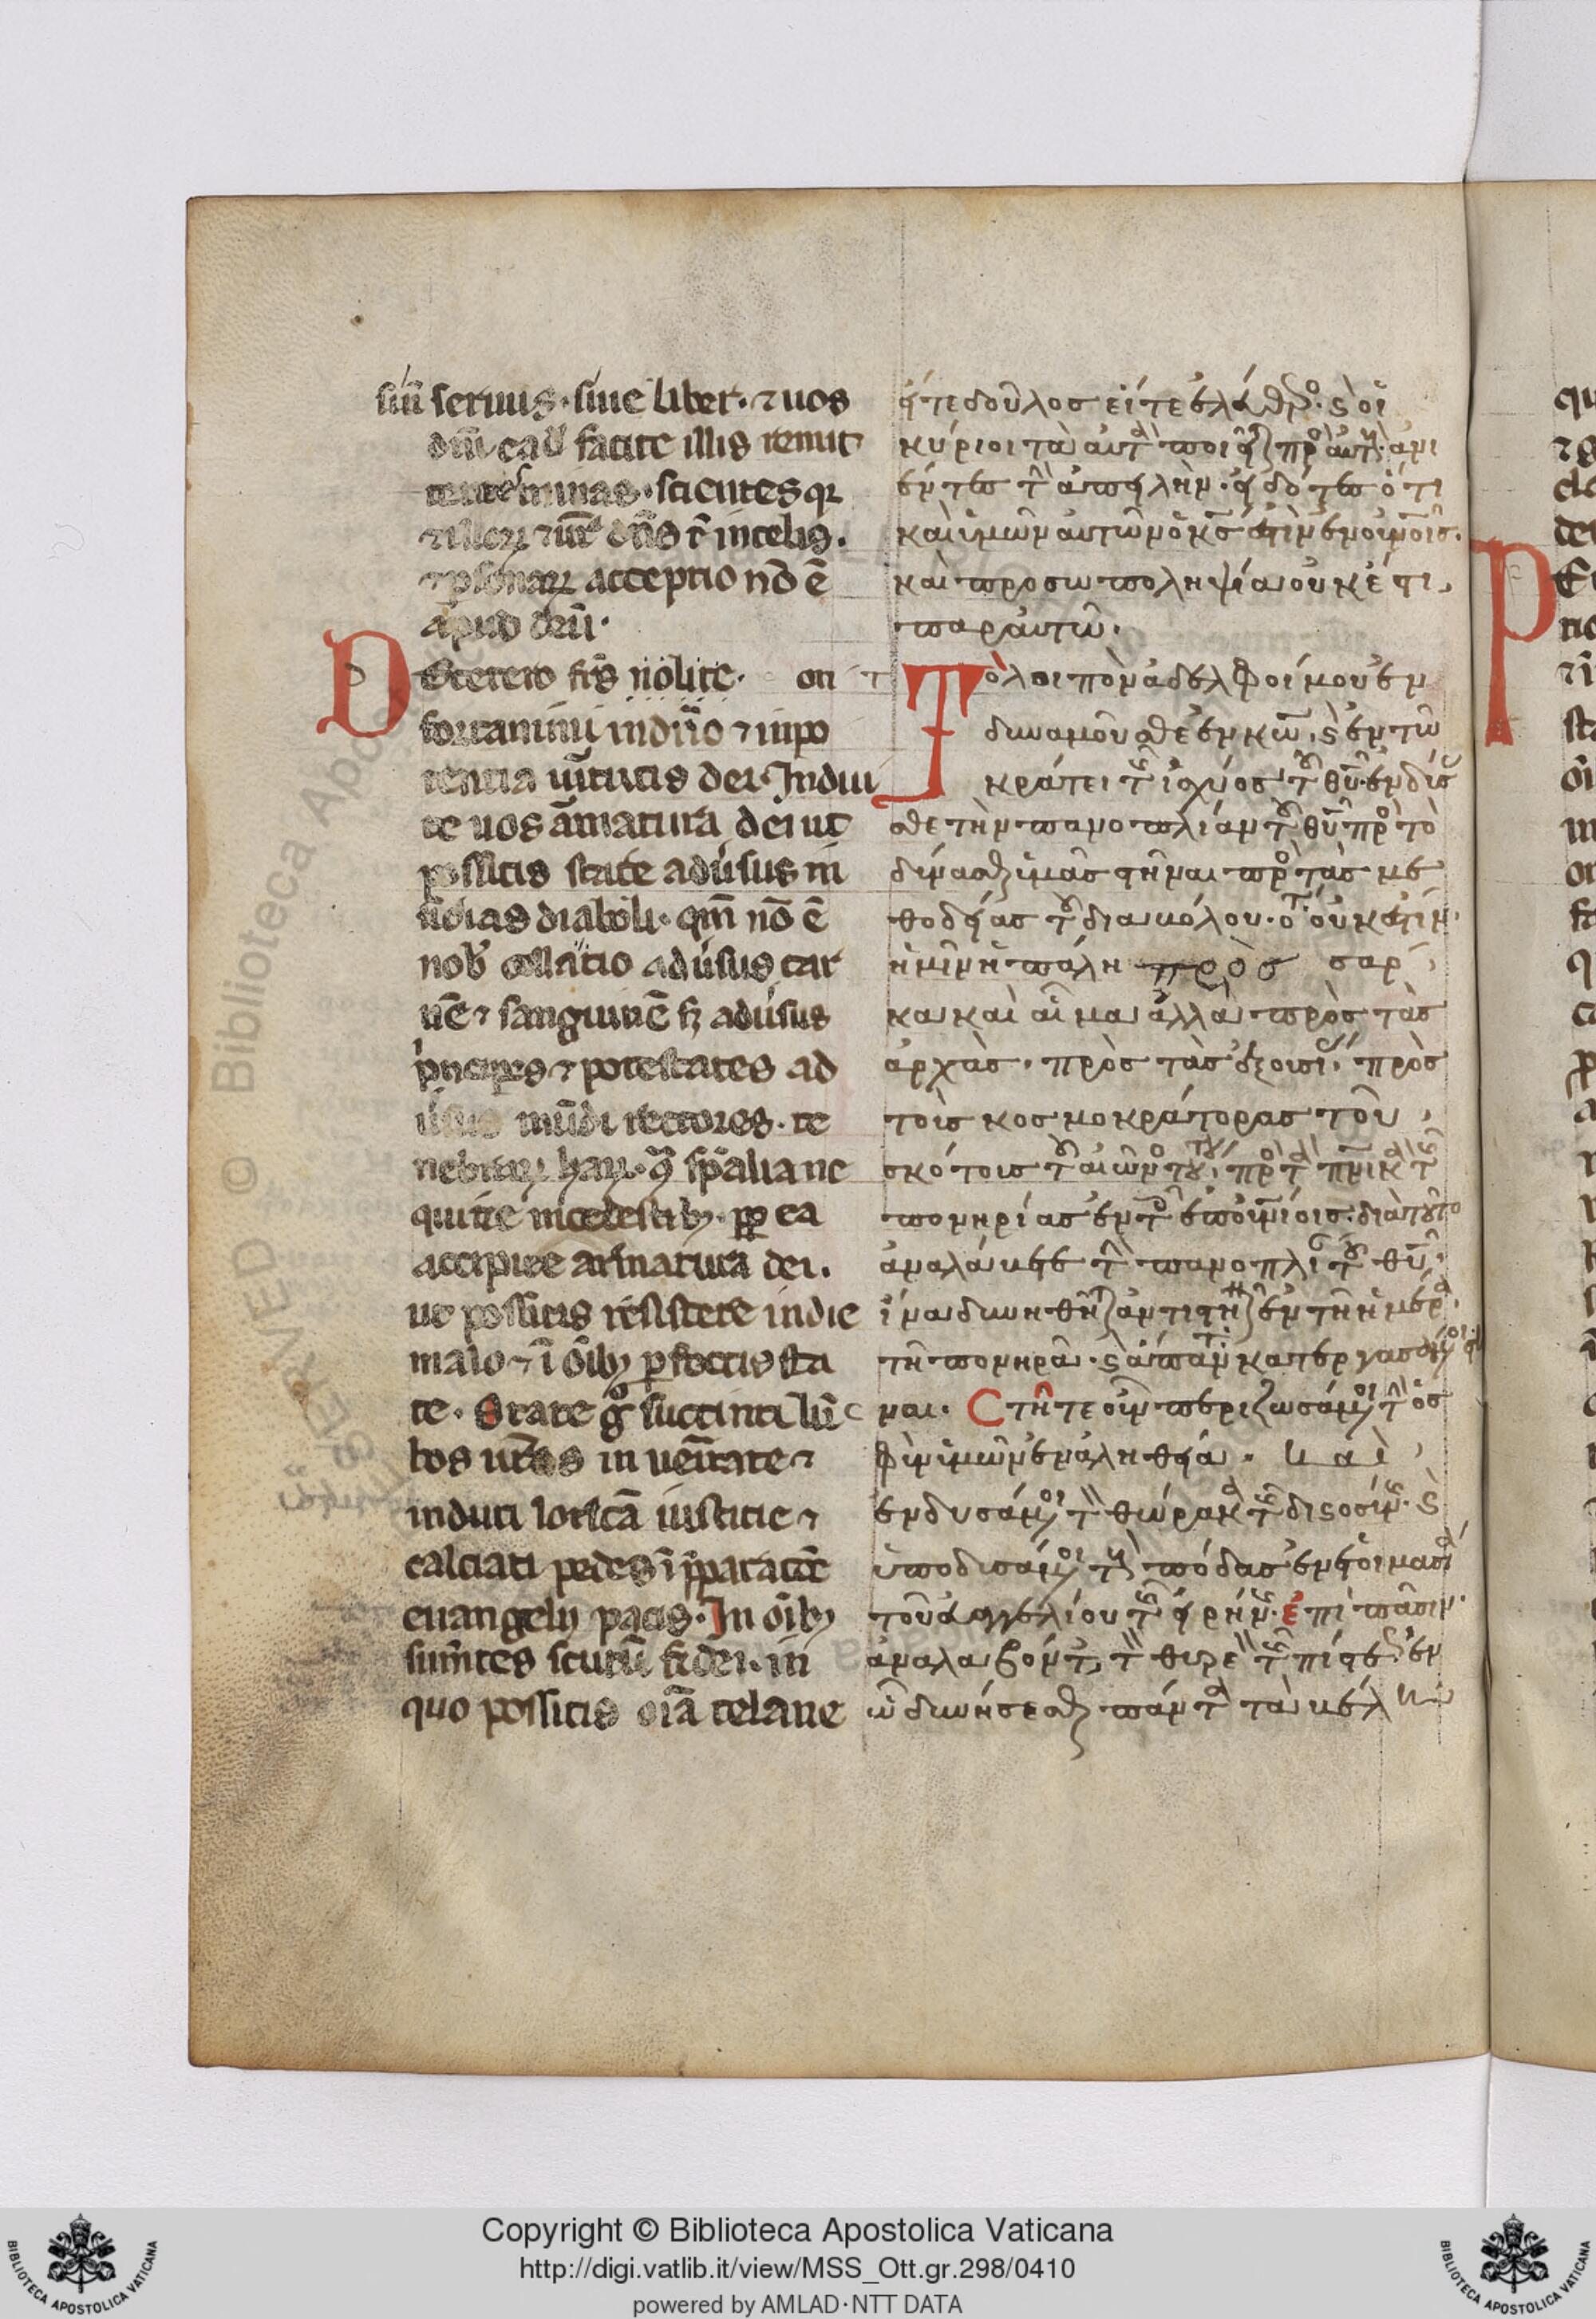 siue seruus · siue liber · ⁊ uos
dñi eadē facite illis remit
tentes minas · scientes qꝛ
⁊ illoꝝ ⁊ ur̄ dñs ē in celis .
⁊ ꝑsonaꝝ acceptio nō ē
apud deū ·
De cetero fr̄s nolite · on
fortamini in dño ⁊ in po
tentia uirtutis dei · Indui
te uos armaturā dei ut
possitis stare aduersus in
sidias diaboli · qm̄ nō ē
nob̄ collatio aduersus car
nē ⁊ sanguinē sꝫ aduersus
principes ⁊ potestates ad
uersus mūdi rectores · te
nebraꝝ haꝝ · spūalia ne
quitie in celestibꝫ · ꝓꝑ ea
accipite armaturā dei .
ut possitis resistere in die
malo ⁊ ī oībꝫ ꝑfectis sta
te · State gͦ succincti lū
bos ur̄os in ueritate ⁊
induti loricā iusticie ⁊
calciati pedes ī p̄paratiōe
euangelij pacis · In oībꝫ
sum̄tes scutū fidei · in
quo possitis oīa tela ne
εἴτε δοῦλοσ εἴτε ἐλεύθερος · ϛ οἱ
κύριοι τὰ αὐτὰ ποιεῖτε πρὸς αὐτοὺς · ἀνι
έντεσ τὴν ἀπειλὴν · εἰδότεσ ὅτι
καὶ ὑμῶν αὐτῶν ὁ κ̅ς̅ ἐστὶν ἐν οὐνοῖς ·
καὶ προσωποληψία οὐκ ἔστι,
παρ αὐτῶ ·
Τὸ λοιπὸν ἀδελφοί μου ἐν
δυναμοῦσθε ἐν κ̅ω̅, ϛ ἐν τῶ
κράτει τῆς ἰσχύοσ τοῦ θ̅υ̅ · ἐνδύσ
σθε τὴν πανοπλίαν τοῦ θ̅υ̅ πρὸς τὸ
δύνασθαι ὑμᾶσ στῆναι πρὸς τὰσ με
θοδείασ τοῦ διαβόλου · ὅτι οὐκ ἔστιν
ἡμῖν ἡ πάλη πρὸσ σαρ
κα καὶ αἷμα ἀλλὰ πρὸσ τὰσ
ἀρχὰσ · πρὸσ τὰσ ἐξουσίας, πρὸσ
τοὺσ κοσμοκράτορασ τοῦ
σκότουσ τοῦ αἰῶνος τούτου, πρὸς τὰ πν̅ικὰ τῆς
πονηρίασ ἐν τοῖς ἐπουρανίοισ · διὰ τοῦτο
ἀναλάβετε τὴν πανοπλίαν τοῦ θ̅υ̅ ·
ἵνα δυνηθῆτε ἀντιστῆναι ἐν τῆ ἡμέρα
τῆ πονηρᾶ · ϛ ἅπαντα κατεργασάμενοι στῆ
ναι · Στῆτε οὖν περιζωσάμενοι τὴν ὀσ
φὺν ὑμῶν ἐν ἀληθεία · καὶ
ἐνδυσάμενοι τὸν θώρακα τῆς δικαιοσύνης · ϛ
ὑποδησάμενοι τοὺς πόδασ ἐν ἑτοιμασία
τοῦ εὐαγγελίου τῆς εἰρήνης · ἐπὶ πᾶσιν ·
ἀναλαβόντες τὸν θυρεὸν τῆς πίστεως ἐν
ὧ δυνήσεσθε πάντα τὰ βέλη
Copyright © Biblioteca Apostolica Vaticana
http://digi.vatlib.it/view/MSS_Ott.gr.298/0410
powered by AMLAD·NTT DATA